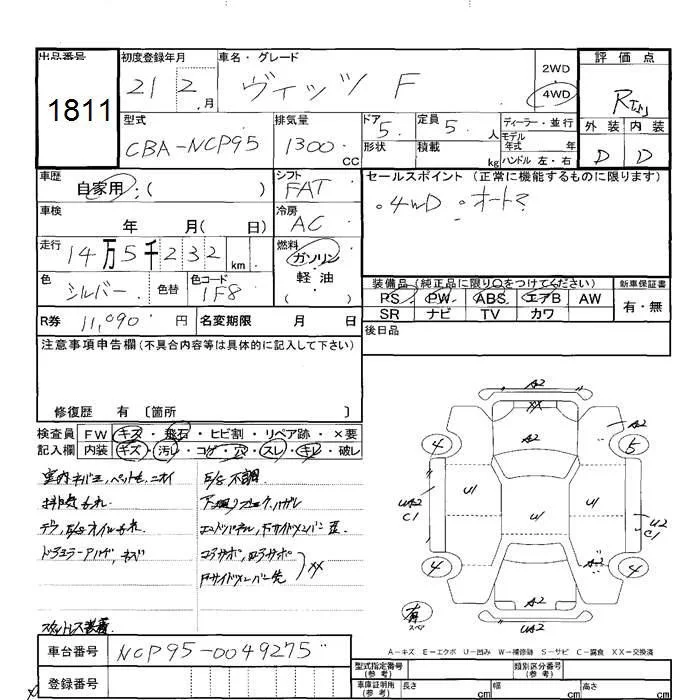 出品番号 初度登録年月 車名・グレード 評価点
1811 21 2 月 ヴィッツ F 2WD 4WD R
型式 排気量 ドア 5 定員 5 人 ディーラー・並行 外装 内装
CBA-NCP95 1300 CC 形状 積載 kg モデル年式 年 ハンドル 左・右 D D
車歴 自家用:( ) シフト FAT セールスポイント (正常に機能するものに限ります)
車検 年 月( 日) 冷房 AC 。4WD 。オート
走行 14万5千232 km 燃料 ガソリン 軽油
色 シルバー 色替 色コード 1F8 装備品(純正品に限り○をつけてください) 新車保証書
PS PW ABS エアB AW 有・無
R券 11,090 円 名変期限 月 日 SR ナビ TV カワ
注意事項申告欄(不具合内容等は具体的に記入して下さい) 後日品
修復歴 有 〔箇所 〕
検査員 FW キズ・飛石・ヒビ割・リペア跡・×要
記入欄 内装 キズ・汚レ・コゲ・穴・スレ・キレ・破レ
室内キバミ,ペット毛,ニオイ E/G不調
排気もれ
デフ,E/Gオイルもれ
コアサポ,
Fサイドメンバー先 XX
スタットレス装着
A2
XX
A2
4 5 A2
UA2 C1 U1 U1 U1 U2 C1
A2
4 4
A2
有 スペア UA2
A-キズ E-エクボ U-凹み W-補修跡 S-サビ C-腐食 XX-交換済
車台番号 NCP95-0049275
型式指定番号(参考) 類別区分番号(参考)
登録番号 車庫証明用(参考) 長さ cm 幅 cm 高さ cm